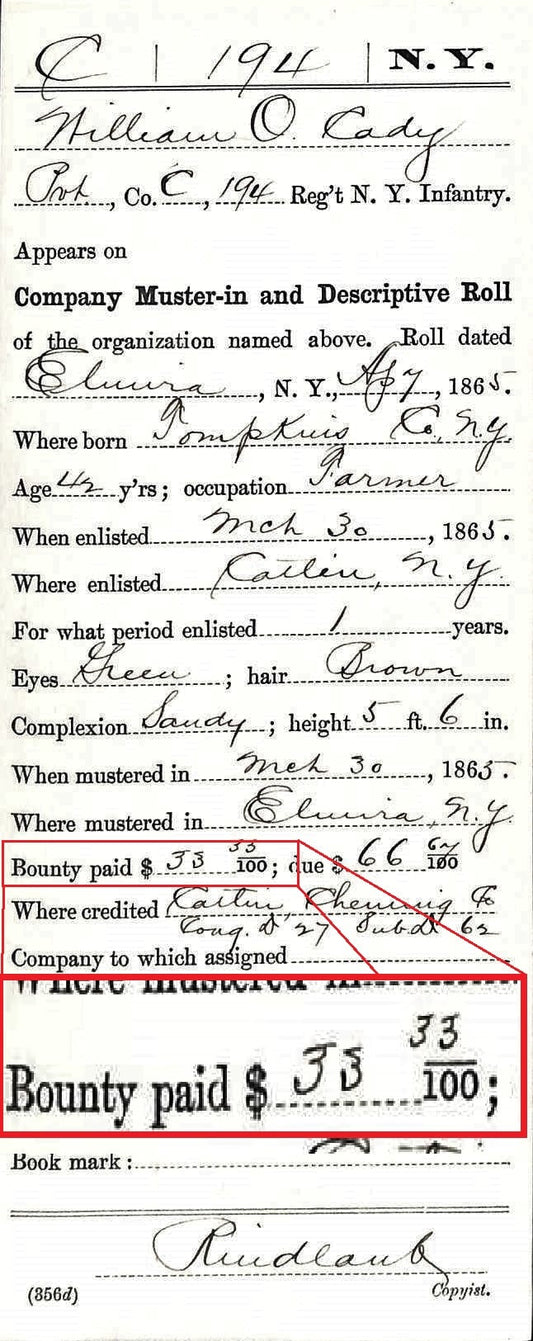 C | 194 | N. Y.
William O. Cady
Pvt., Co. C, 194 Reg't N. Y. Infantry.
Appears on
Company Muster-in and Descriptive Roll
of the organization named above. Roll dated
Elmira, N. Y., Ap 7, 1865.
Where born Tompkins Co, N.Y.
Age 42 y'rs; occupation Farmer
When enlisted Mch 30, 1865.
Where enlisted Catlin, N.Y.
For what period enlisted 1 years.
Eyes Green; hair Brown
Complexion Sandy; height 5 ft. 6 in.
When mustered in Mch 30, 1865.
Where mustered in Elmira, N.Y.
Bounty paid $ 33 33/100; due $ 66 67/100
Where credited Catlin, Chemung Co
Cong. D 27 Sub D 62
Company to which assigned
Where mustered in
Bounty paid $ 33 33/100;
Book mark:
Rindlaub
(356d) Copyist.